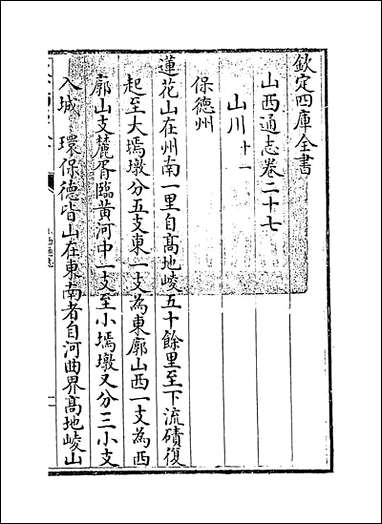 欽定四庫全書
山西通志卷二十七
山川十一
保德州
蓮花山在州南一里自髙地崚五十餘里至下流磧復
起至大墕墩分五支東一支為東廓山西一支為西
廓山支麓胥臨黄河中一支至小墕墩又分三小支
入城 環保德皆山在東南者自河曲界髙地崚山